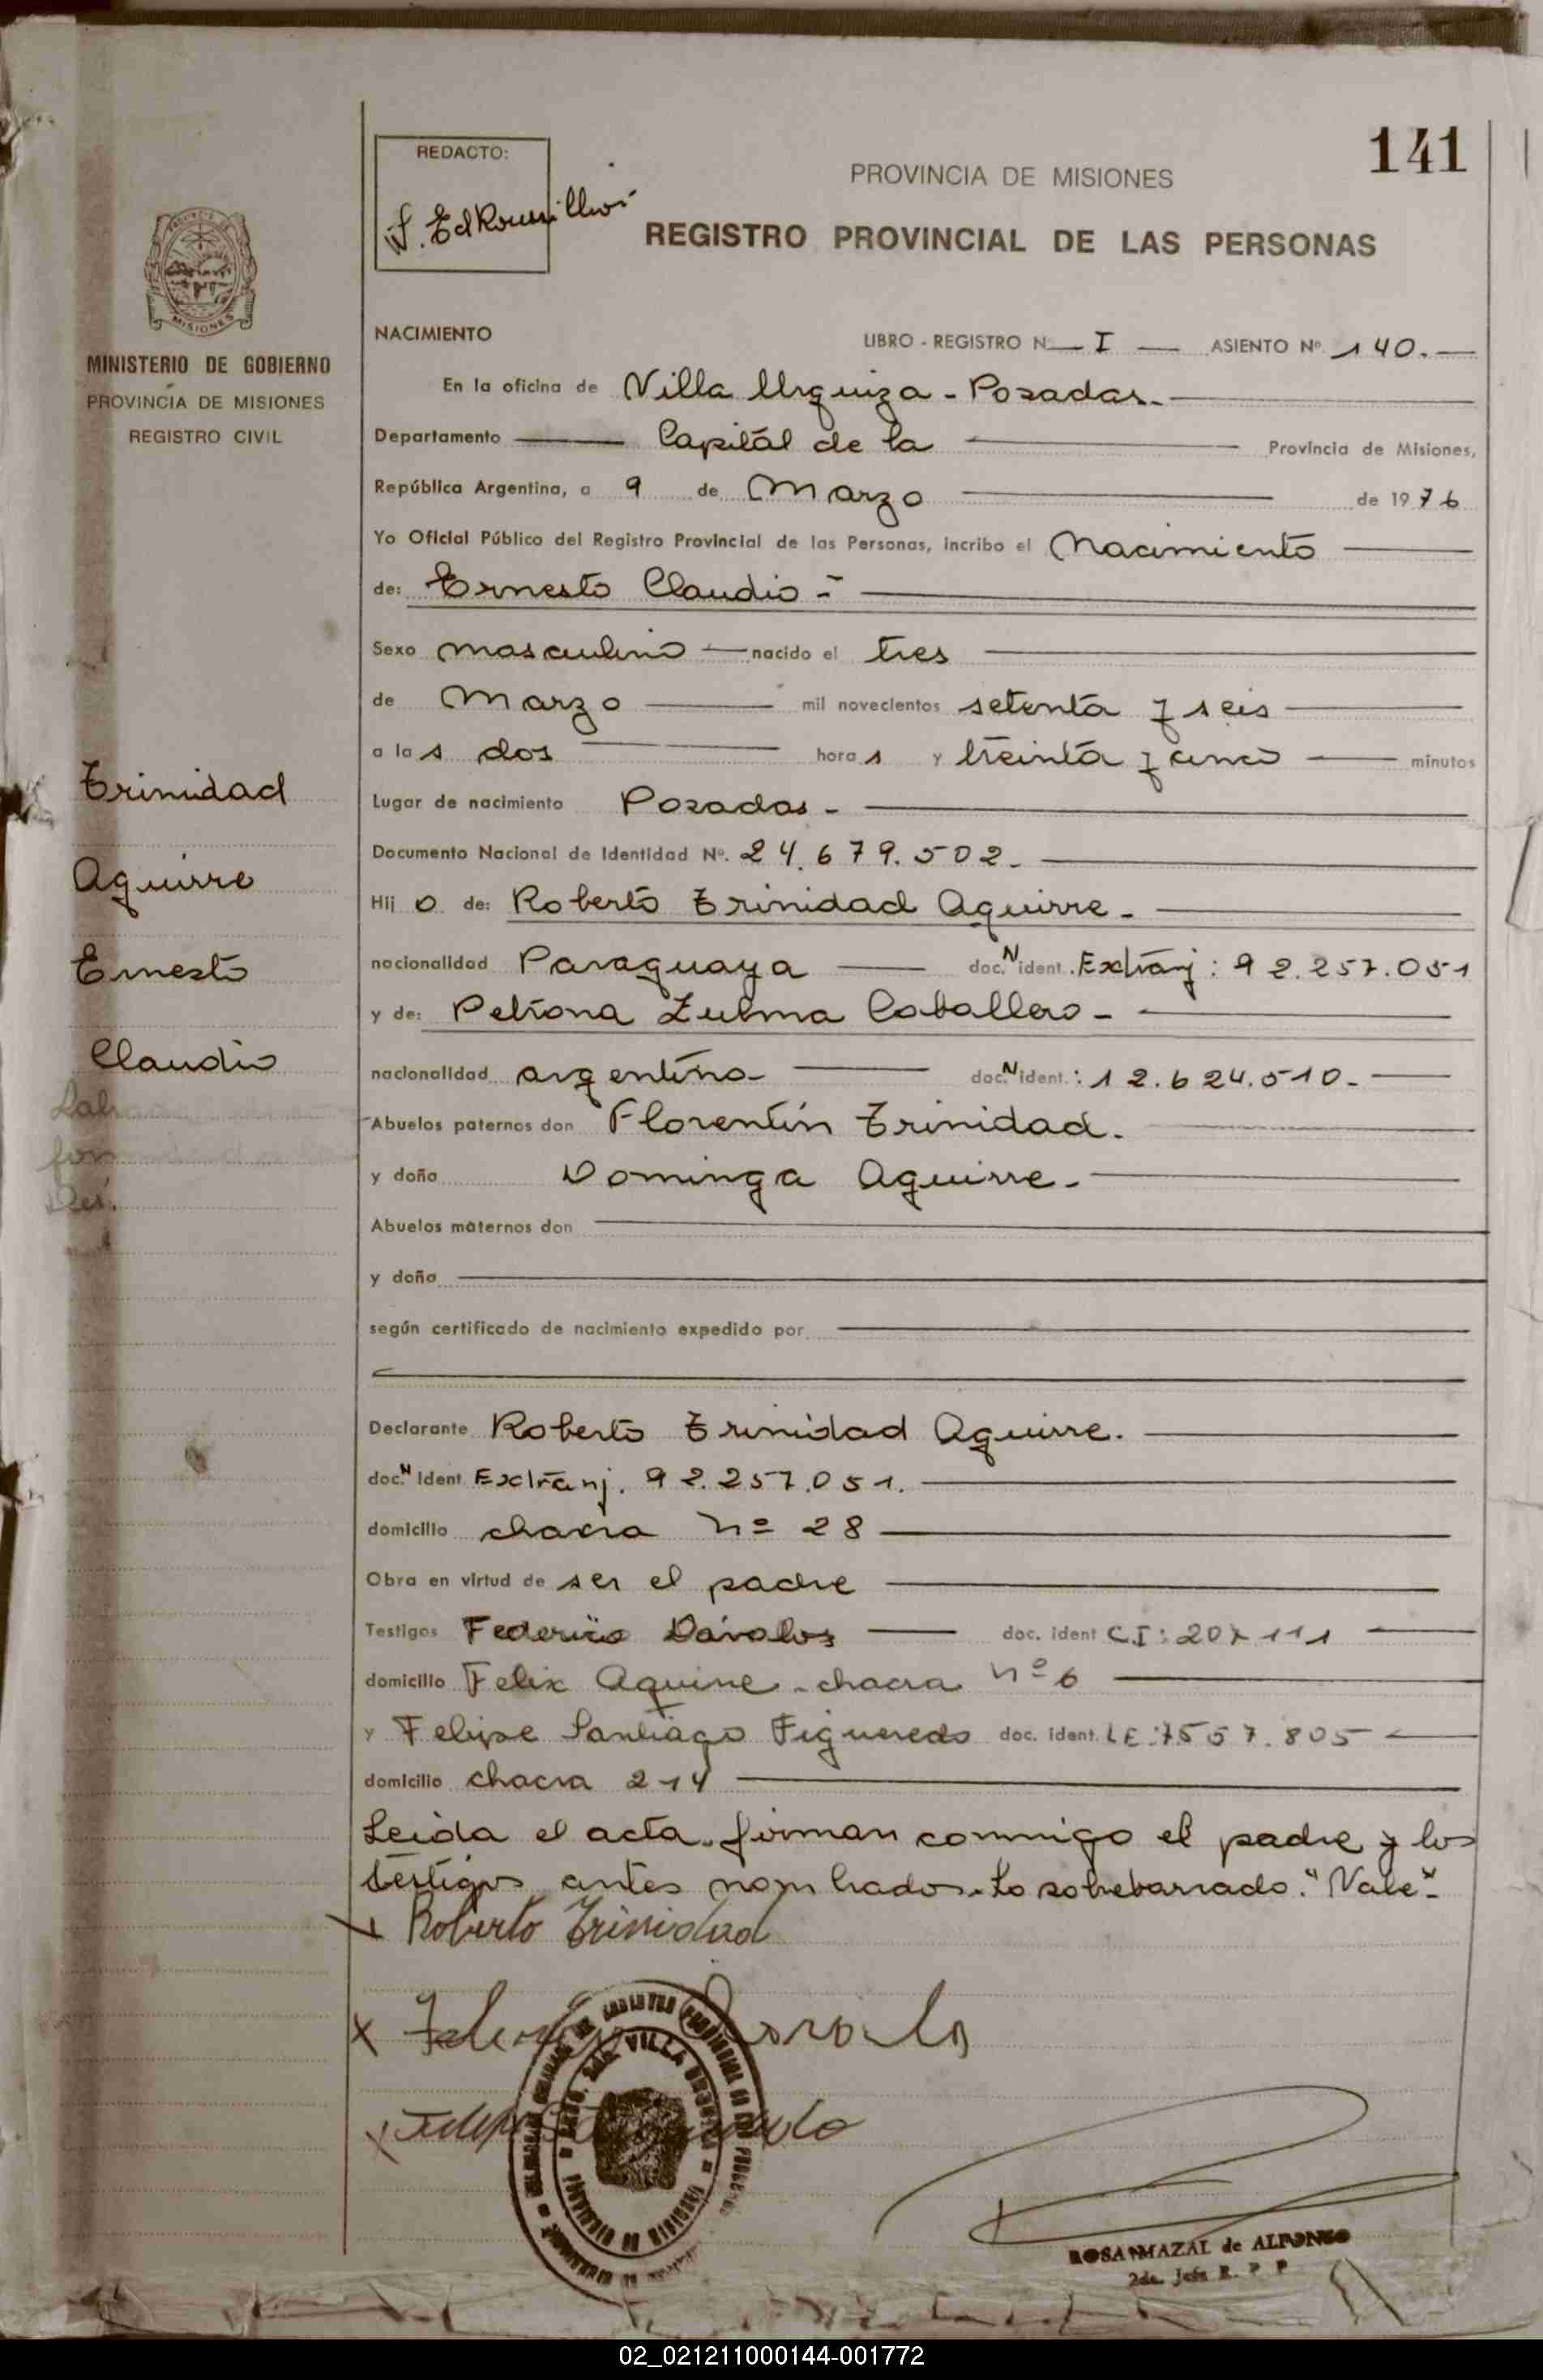 141
REDACTO:
PROVINCIA DE MISIONES
REGISTRO PROVINCIAL DE LAS PERSONAS
MISIONES
MINISTERIO DE GOBIERNO
PROVINCIA DE MISIONES
REGISTRO CIVIL
NACIMIENTO LIBRO - REGISTRO Nº I ASIENTO Nº 140.-
En la oficina de Villa Urquiza - Posadas.-
Departamento Capital de la Provincia de Misiones,
República Argentina, a 9 de Marzo de 1976
Yo Oficial Público del Registro Provincial de las Personas, incribo el Nacimiento
de: Ernesto Claudio -
Sexo masculino nacido el tres
de Marzo mil novecientos setenta y seis
a las dos horas y treinta y cinco minutos
Lugar de nacimiento Posadas -
Documento Nacional de Identidad Nº. 24.679.502.-
Hijo de: Roberto Trinidad Aguirre -
nacionalidad Paraguaya doc. N ident. Extranj: 92.257.051
y de: Petrona Zulma Caballero -
nacionalidad argentina doc. N ident.: 12.624.510.-
Abuelos paternos don Florentín Trinidad.
y doña Dominga Aguirre.-
Abuelos maternos don
y doña
según certificado de nacimiento expedido por
Declarante Roberto Trinidad Aguirre.
doc. N Ident Extranj. 92.257.051.
domicilio chacra Nº 28
Obra en virtud de ser el padre
Testigos Federico Dávalos doc. ident C.I: 207111
domicilio Felix Aguirre - chacra nº 6
y Felipe Santiago Figueredo doc. ident. LE: 7557.805
domicilio chacra 214
Leída el acta, firman conmigo el padre y los
testigos antes nombrados. Lo sobreborrado: "Vale"-
Roberto Trinidad
Trinidad
Aguirre
Ernesto
Claudio
VILLA URQUIZA
ROSA MAZAL de ALFONSO
2da. Jefe R. P. P
02_021211000144-001772